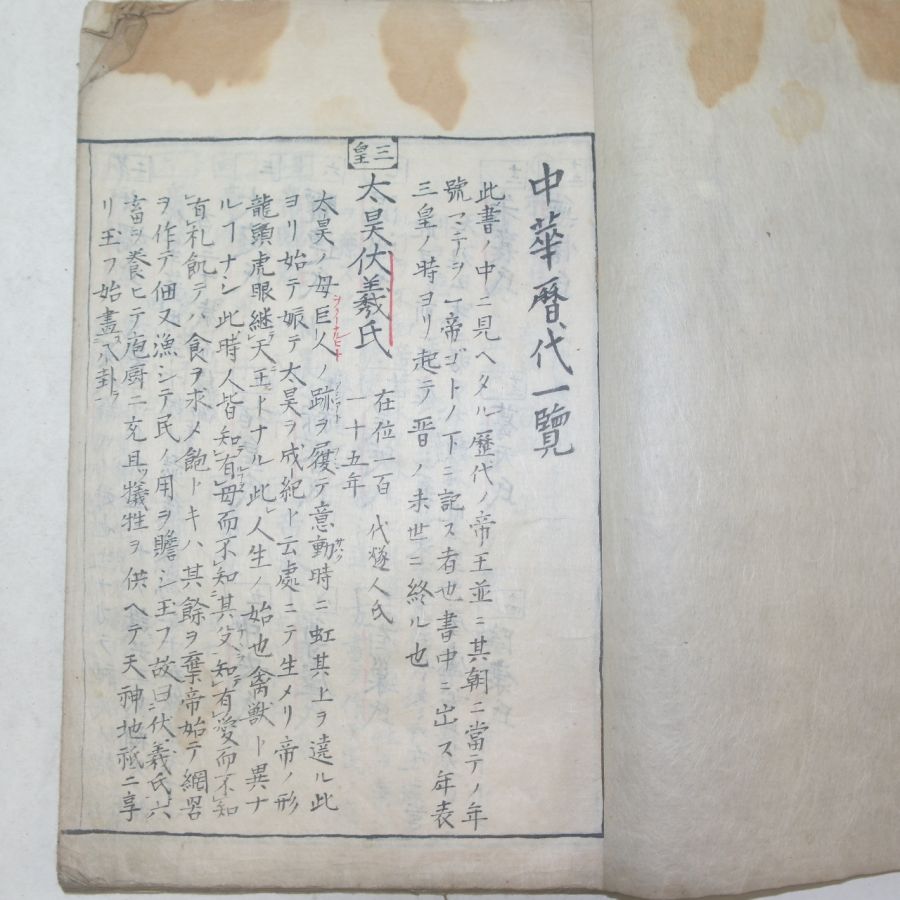 中華曆代一覽
此書ノ中ニ見ヘタル歷代ノ帝王並ニ其朝ニ當テノ年
號マテヲ一帝ゴトノ下ニ記ス者也書中ニ出ス年表
三皇ノ時ヨリ起テ晋ノ末世ニ終ル也
三皇
太昊伏羲氏 在位一百一十五年 代燧人氏
太昊ノ母巨人ノ跡ヲ履テ意動時ニ虹其上ヲ遶ル此
ヨリ始テ娠テ太昊ヲ成紀ト云處ニテ生メリ帝ノ形
龍頭虎眼継天王トナル此人生ノ始也禽獸ト異ナ
ルフナシ此時人皆知有母而不知其父知有愛而不知
有礼飢テハ食ヲ求メ飽トキハ其餘ヲ棄帝始テ網罟
ヲ作テ佃又漁シテ民ノ用ヲ贍シ玉フ故曰伏羲氏六
畜ヲ養ヒテ庖厨ニ充且犠牲ヲ供ヘテ天神地祗ニ享
リ玉フ始畫八卦